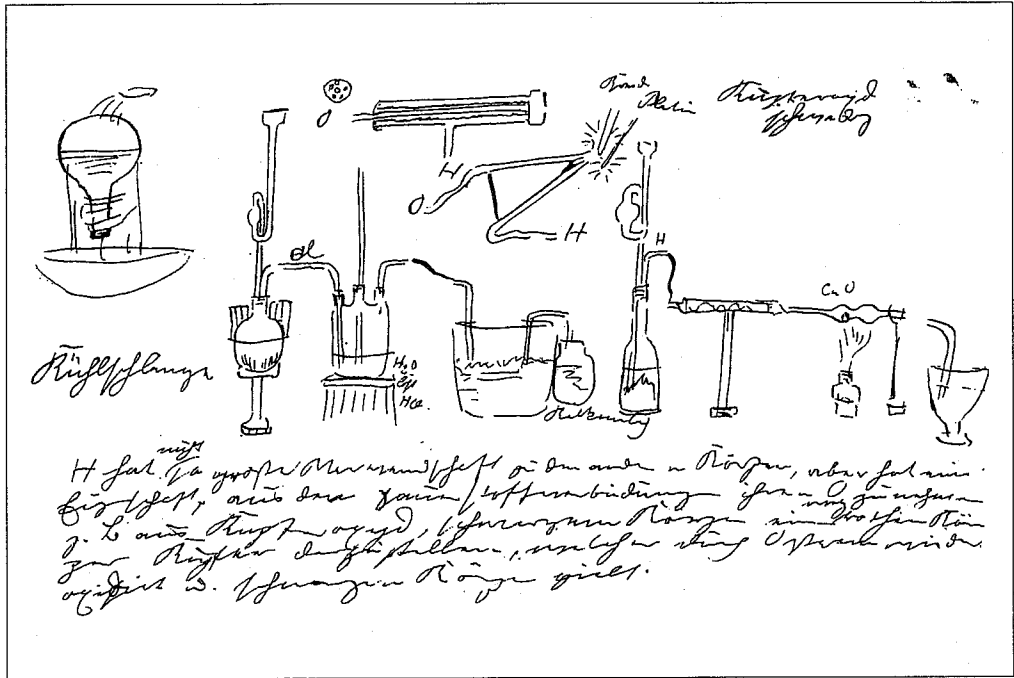 Platin
Kupferoxyd
schwarz
O
H
O
H
H
CuO
H₂O
Kühlschlange
nicht
H hat große Verwandschaft zu den andern Körpern, aber hat eine
Eigschaft, aus den sauerstoffverbindungen ihren O weg zu nehmen
z. B aus Kupferoxyd, schwarzem Körper einen rothen Kör
per Kupfer darzustellen, welcher durch wieder
oxidirt u. schwarzen Körper giebt.